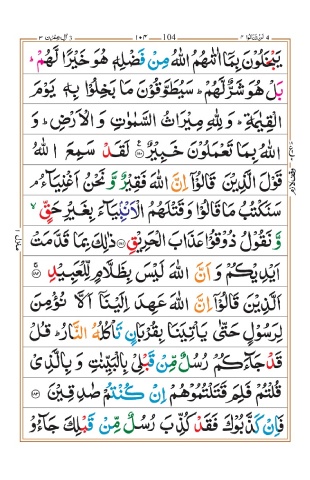 يَبْخَلُوْنَ بِمَاۤ اٰتٰىهُمُ اللّٰهُ مِنْ فَضْلِهٖ هُوَ خَيْرًا لَّهُمْ ؕ
بَلْ هُوَ شَرٌّ لَّهُمْ ؕ سَيُطَوَّقُوْنَ مَا بَخِلُوْا بِهٖ يَوْمَ
الْقِيٰمَةِ ؕ وَ لِلّٰهِ مِيْرَاثُ السَّمٰوٰتِ وَ الْاَرْضِ ؕ وَ
اللّٰهُ بِمَا تَعْمَلُوْنَ خَبِيْرٌ ﴿۱۸۰﴾ لَقَدْ سَمِعَ اللّٰهُ
قَوْلَ الَّذِيْنَ قَالُوْۤا اِنَّ اللّٰهَ فَقِيْرٌ وَّ نَحْنُ اَغْنِيَآءُ ۘ
سَنَكْتُبُ مَا قَالُوْا وَ قَتْلَهُمُ الْاَنْۢبِيَآءَ بِغَيْرِ حَقٍّ ۙ
وَّ نَقُوْلُ ذُوْقُوْا عَذَابَ الْحَرِيْقِ ﴿۱۸۱﴾ ذٰلِكَ بِمَا قَدَّمَتْ
اَيْدِيْكُمْ وَ اَنَّ اللّٰهَ لَيْسَ بِظَلَّامٍ لِّلْعَبِيْدِ ﴿۱۸۲﴾
اَلَّذِيْنَ قَالُوْۤا اِنَّ اللّٰهَ عَهِدَ اِلَيْنَاۤ اَلَّا نُؤْمِنَ
لِرَسُوْلٍ حَتّٰى يَاْتِيَنَا بِقُرْبَانٍ تَاْكُلُهُ النَّارُ ؕ قُلْ
قَدْ جَآءَكُمْ رُسُلٌ مِّنْ قَبْلِيْ بِالْبَيِّنٰتِ وَ بِالَّذِيْ
قُلْتُمْ فَلِمَ قَتَلْتُمُوْهُمْ اِنْ كُنْتُمْ صٰدِقِيْنَ ﴿۱۸۳﴾
فَاِنْ كَذَّبُوْكَ فَقَدْ كُذِّبَ رُسُلٌ مِّنْ قَبْلِكَ جَآءُوْ
104